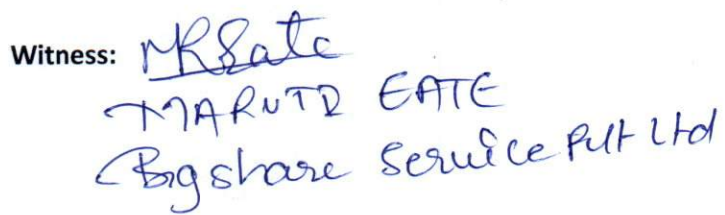 Witness: MREate
MARUTI EATE
Bigshare Service Pvt Ltd